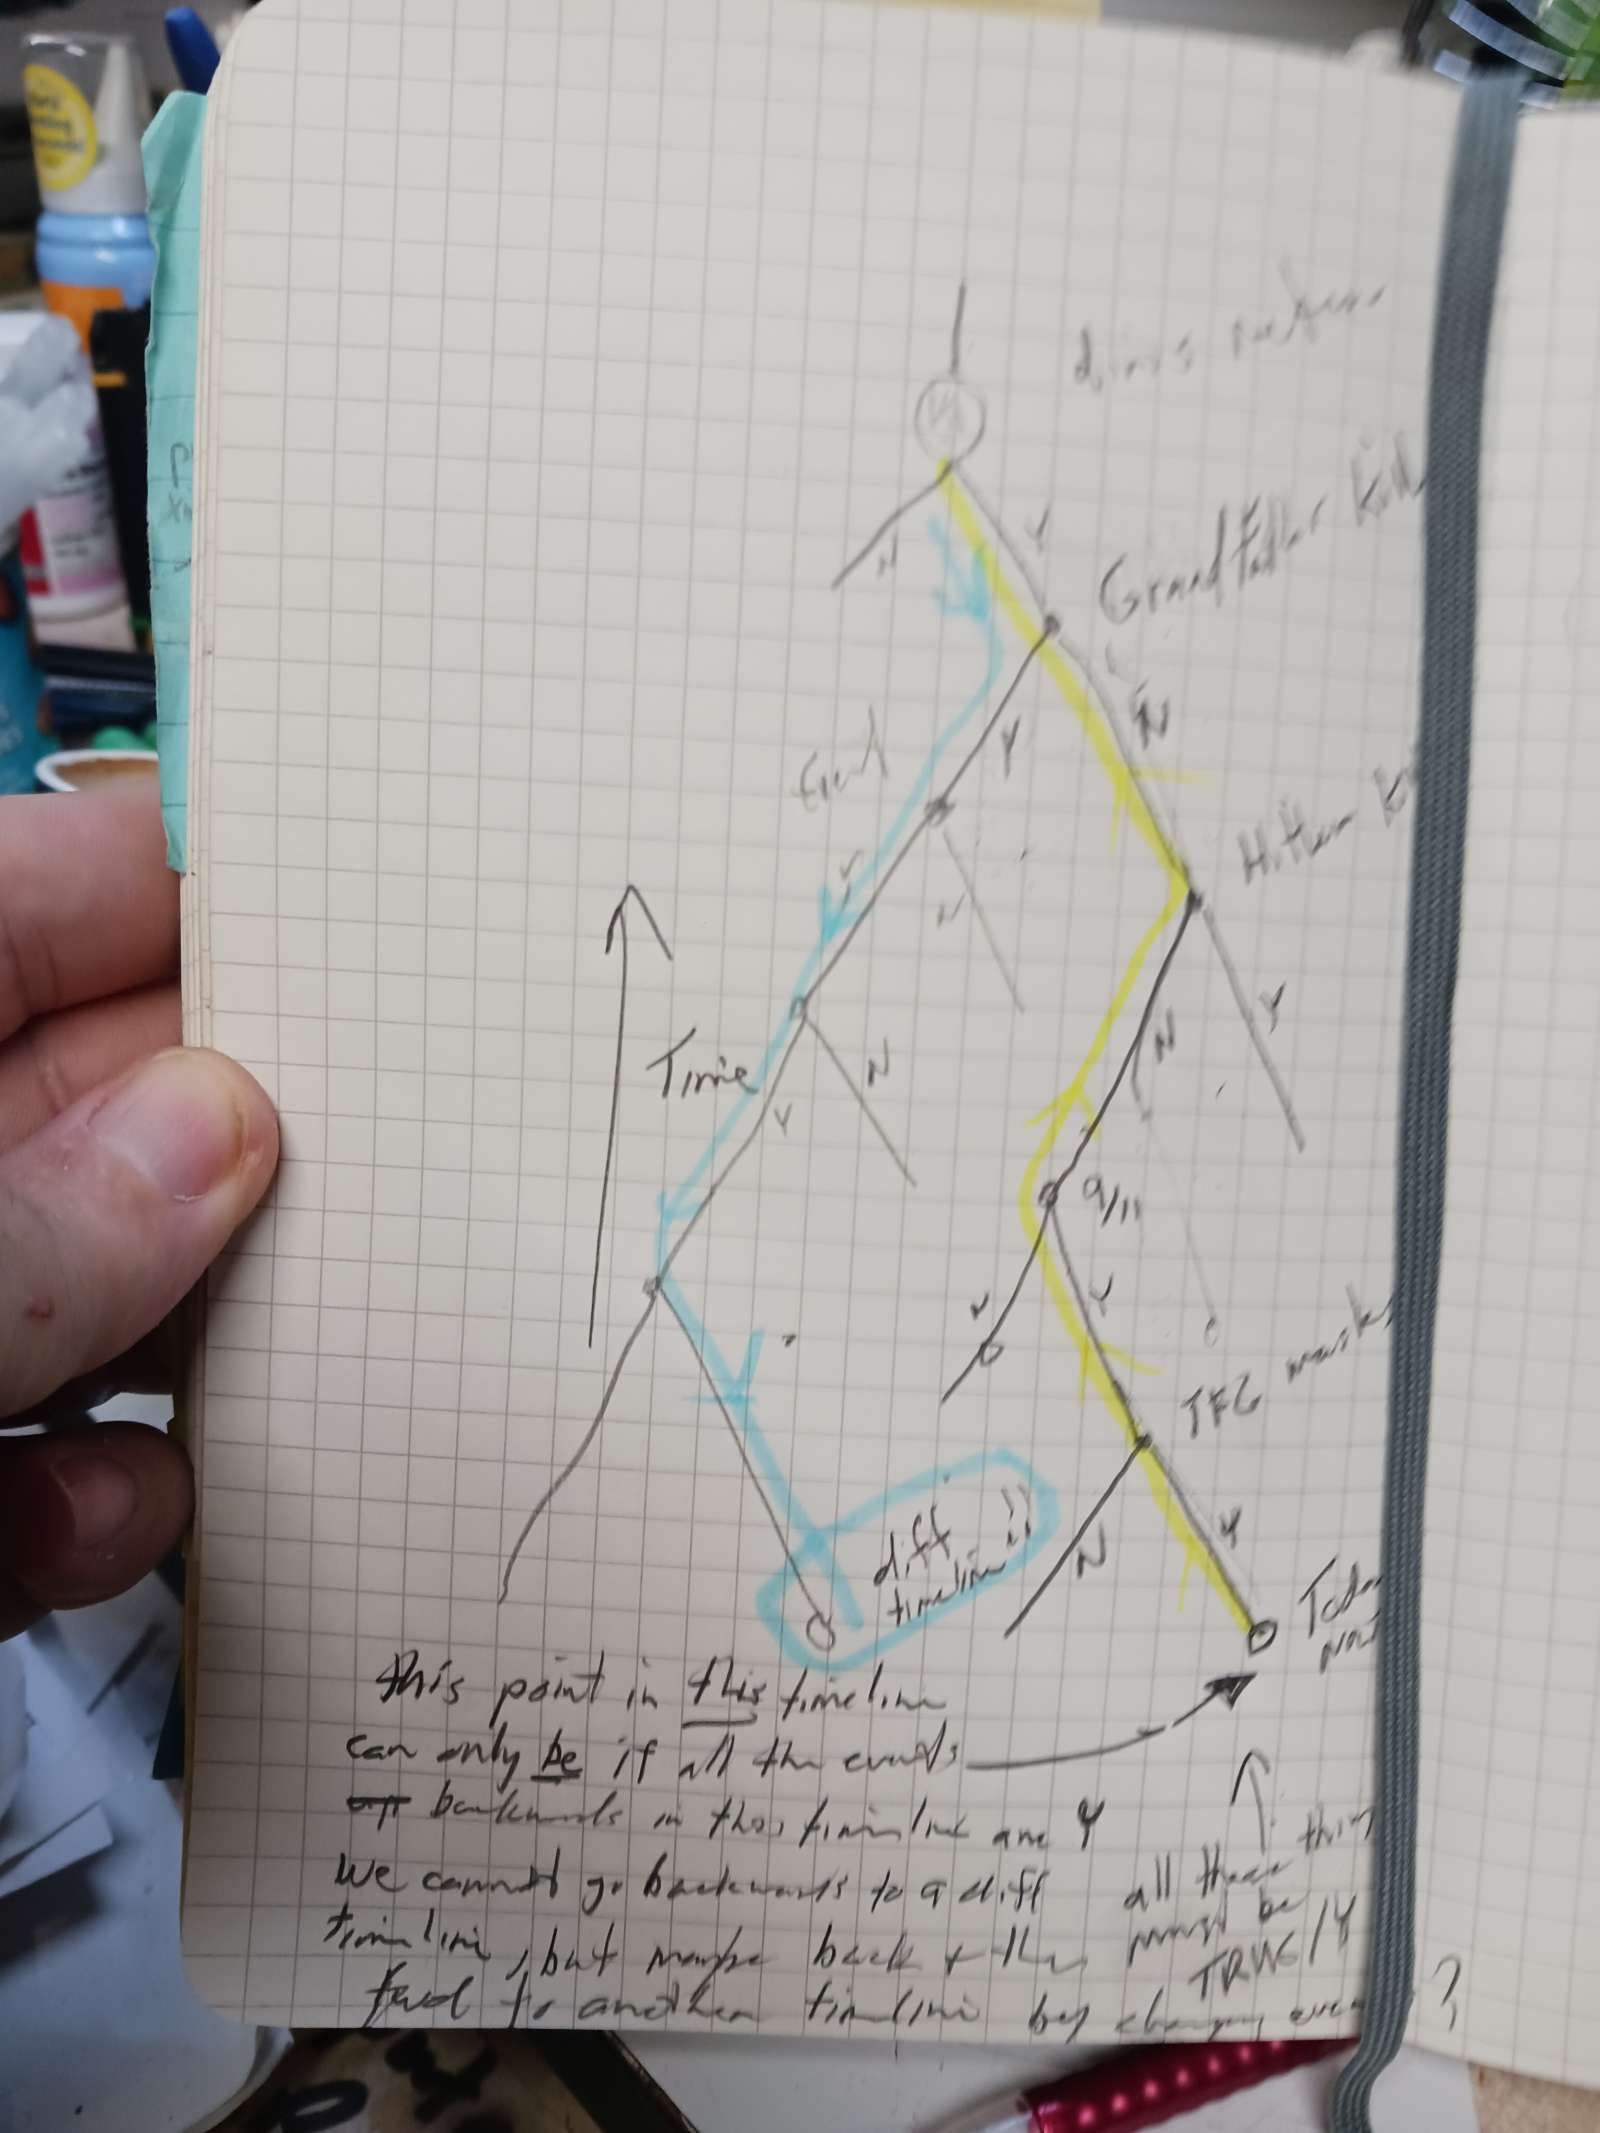 N
Y
Grandfather Kill
N
Event
Y
Hitler
Y
N
Y
N
N
Time
Y
9/11
N
Y
N
Y
diff
timeline
N
this point in this timeline
can only be if all the events
backwards in this timeline are Y
We cannot go backwards to a diff
timeline, but maybe back & then
fwd to another timeline by changing ?
all these
must be
TRUE/Y